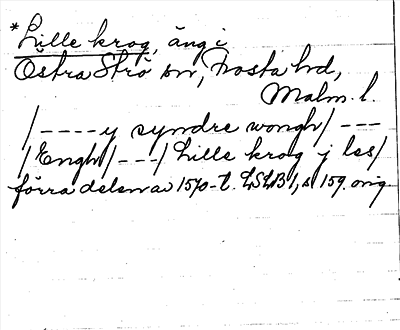 *Lille krog, äng i
Östra Strö sn, Frosta hd,
Malm. l.
/----y syndre wongh/---
/Enghe/---/Lille krog j les/
förra delen av 1570-t. LSLB1, s 159. orig